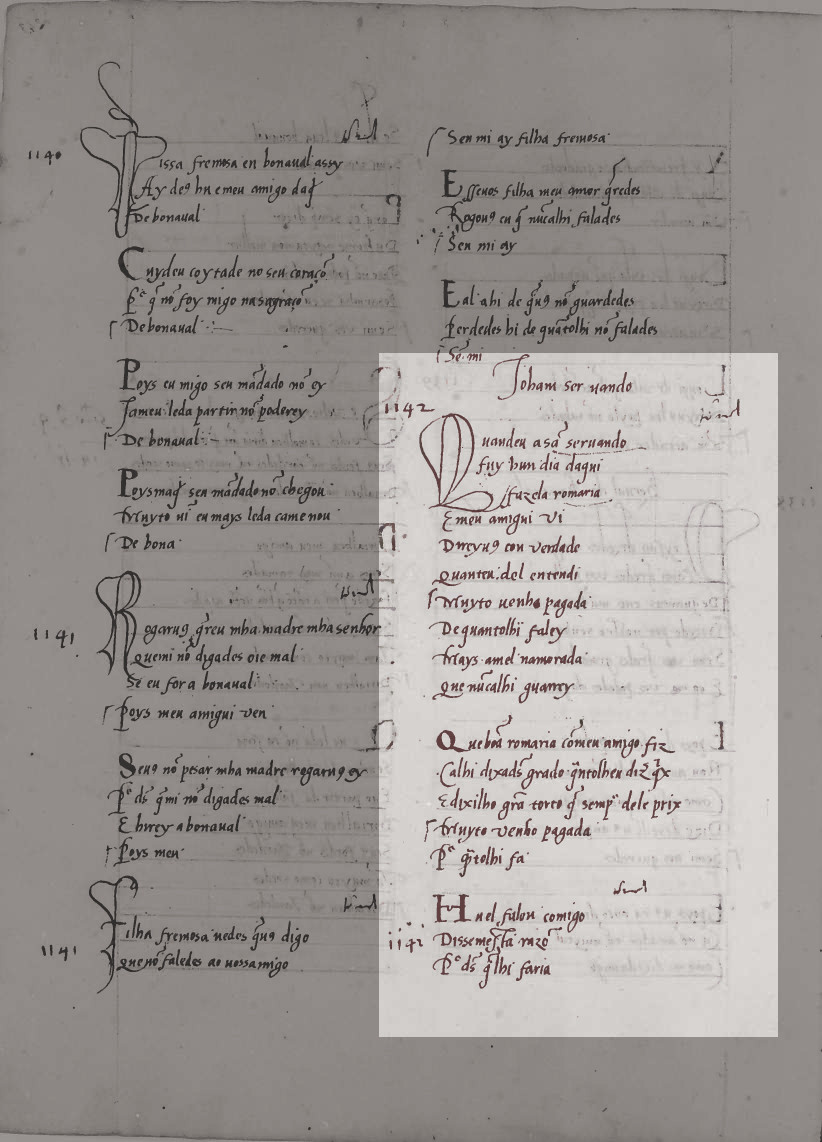 1140
Fissa fremosa en bonaual assy
Ay deꝯ hu e meu amigo daq̄
De bonaual
Cuydeu coytade no seu coraçō
P̄ q̄ nō foy migo na sagraçō
De bonaual
Poys eu migo seu mādado nō ey
Jameu leda partir nō poderey
De bonaual
Poys maq̄ seu mādado nō chegou
Muyto ui eu mays leda ca me uou
De bona
1141
Rogaruꝯ q̄reu mha madre mha senhor
Que mi nō digades oie mal
Se eu for a bonaual
Poys meu amigui uen
Seuꝯ nō pesar mha madre rogaruꝯ ey
P̄ dŝ q̄mi nō digades mal
E hirey a bonaual
Poys meu
1141
Filha fremosa uedes q̄uꝯ digo
Que nō faledes ao uossamigo
Sen mi ay filha fremosa
E sseuos filha meu amor q̄redes
Rogouꝯ eu q̄ nūcalhi falades
Sen mi ay
E al a hi de q̄uꝯ nō guardedes
Perdedes hi de quātolhi nō falades
Sē mi
Joham seruando
1142
Quandeu a sā seruando
fuy hun dia daqui
ffazela romaria
E meu amigui vi
Direyuꝯ con verdade
Quanteu del entendi
Muyto uenho pagada
De quantolhi faley
Mays amel namorada
Que nūcalhi guarrey
Que boā romaria cō meu amigo fiz
Ca lhi dix a dŝ grado q̄ntolheu diz̄ q̄x
E dixilho grā torto q̄ semp̄ dele prix
Muyto venho pagada
P̄ q̄ntolhi fa
1142
Hu el falou comigo
Disseme sta razō
P̄ dŝ q̄lhi faria